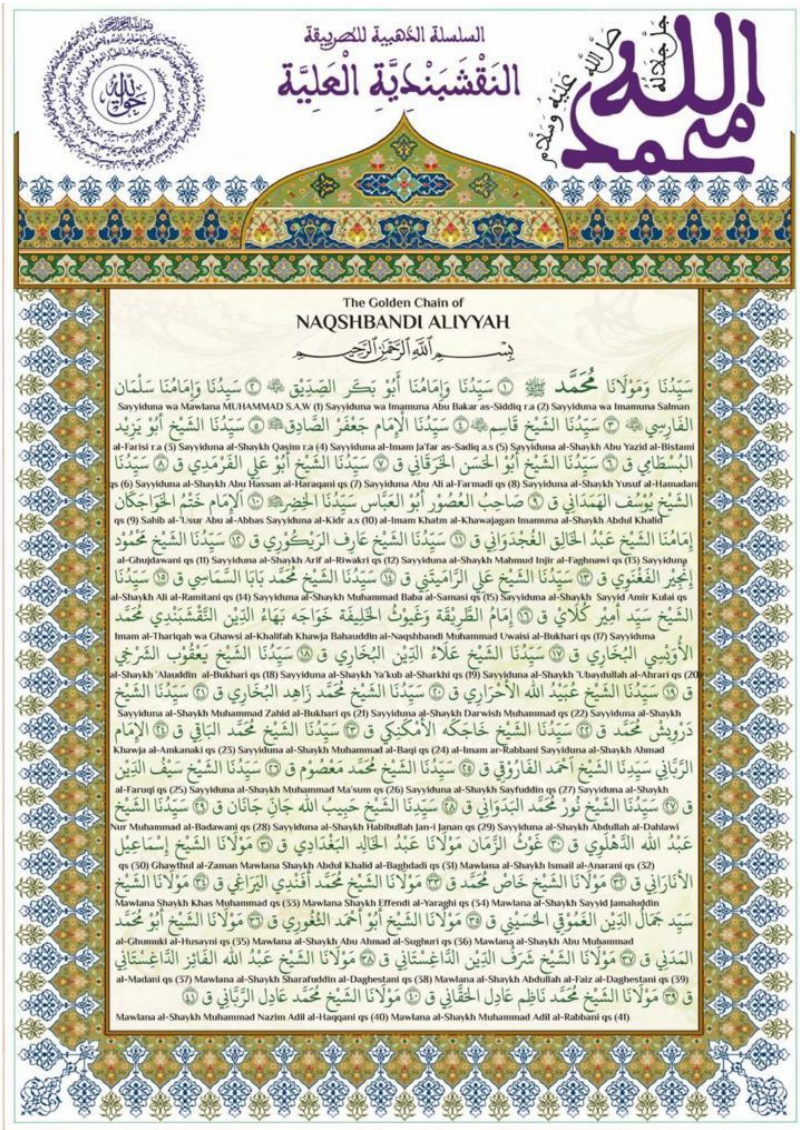 السلسلة الذهبية للطريقة
النَقْشبَنْدِيَّةِ الْعَلِيَّة
الله
جل جلاله
محمد
صلى الله عليه وسلم
The Golden Chain of
NAQSHBANDI ALIYYAH
بِسْمِ ٱللَّهِ ٱلرَّحْمَٰنِ ٱلرَّحِيمِ
سَيِّدُنَا وَمَوْلَانَا مُحَمَّد ﷺ ① سَيِّدُنَا وَإِمَامُنَا أَبُو بَكَر الصِّدِّيْق ② سَيِّدُنَا وَإِمَامُنَا سَلْمَان
Sayyiduna wa Mawlana MUHAMMAD S.A.W (1) Sayyiduna wa Imamuna Abu Bakar as-Siddiq r.a (2) Sayyiduna wa Imamuna Salman
الفَارِسِي ③ سَيِّدُنَا الشَّيْخ قَاسِم ④ سَيِّدُنَا الْإِمَام جَعْفَر الصَّادِق ⑤ سَيِّدُنَا الشَّيْخ أَبُو يَزِيْد
al-Farisi r.a (3) Sayyiduna al-Shaykh Qasim r.a (4) Sayyiduna al-Imam Ja'far as-Sadiq a.s (5) Sayyiduna al-Shaykh Abu Yazid al-Bistami
البُسْطَامِي ق ⑥ سَيِّدُنَا الشَّيْخ أَبُو الْحَسَن الْخَرَقَانِي ق ⑦ سَيِّدُنَا الشَّيْخ أَبُو عَلِي الفَرْمَدِي ق ⑧ سَيِّدُنَا
qs (6) Sayyiduna al-Shaykh Abu Hassan al-Haraqani qs (7) Sayyiduna Abu Ali al-Farmadi qs (8) Sayyiduna al-Shaykh Yusuf al-Hamadani
الشَّيْخ يُوْسُف الْهَمَدَانِي ق ⑨ صَاحِبُ العُصُوْر أَبُو العَبَّاس سَيِّدُنَا الْخِضِر ⑩ اَلإِمَام خَتْم الْخَوَاجَكَان
qs (9) Sahib al-'Usur Abu al-Abbas Sayyiduna al-Kidr a.s (10) al-Imam Khatm al-Khawajagan Imamuna al-Shaykh Abdul Khalid
إِمَامُنَا الشَّيْخ عَبْدُ الْخَالِق الغُجْدَوَانِي ق ⑪ سَيِّدُنَا الشَّيْخ عَارِف الرَّيْكُوْرِي ق ⑫ سَيِّدُنَا الشَّيْخ مَحْمُوْد
al-Ghujdawani qs (11) Sayyiduna al-Shaykh Arif al-Riwakri qs (12) Sayyiduna al-Shaykh Mahmud Injir al-Faghnawi qs (13) Sayyiduna
إِنْجِيْر الفَغْنَوِي ق ⑬ سَيِّدُنَا الشَّيْخ عَلِي الرَّامِيْتَنِي ق ⑭ سَيِّدُنَا الشَّيْخ مُحَمَّد بَابَا السَّمَاسِي ق ⑮ سَيِّدُنَا
al-Shaykh Ali al-Ramitani qs (14) Sayyiduna al-Shaykh Muhammad Baba al-Samasi qs (15) Sayyiduna al-Shaykh Sayyid Amir Kulai qs
الشَّيْخ سَيِّد أَمِيْر كُلَّاي ق ⑯ إِمَامُ الطَّرِيْقَة وَغَيُوْثُ الْخَلِيْفَة خَوَاجَه بَهَاءُ الدِّيْن النَّقْشَبَنْدِي مُحَمَّد
Imam al-Thariqah wa Ghawsi al-Khalifah Khawja Bahauddin al-Naqshbandi Muhammad Uwaisi al-Bukhari qs (17) Sayyiduna
الأُوَيْسِي البُخَارِي ق ⑰ سَيِّدُنَا الشَّيْخ عَلَاءُ الدِّيْن البُخَارِي ق ⑱ سَيِّدُنَا الشَّيْخ يَعْقُوْب الشَّرْجِي
al-Shaykh 'Alauddin al-Bukhari qs (18) Sayyiduna al-Shaykh Ya'kub al-Sharkhi qs (19) Sayyiduna al-Shaykh 'Ubaydullah al-Ahrari qs (20)
ق ⑲ سَيِّدُنَا الشَّيْخ عُبَيْدُ الله الأَحْرَارِي ق ⑳ سَيِّدُنَا الشَّيْخ مُحَمَّد زَاهِد البُخَارِي ق ㉑ سَيِّدُنَا الشَّيْخ
Sayyiduna al-Shaykh Muhammad Zahid al-Bukhari qs (21) Sayyiduna al-Shaykh Darwish Muhammad qs (22) Sayyiduna al-Shaykh
دَرْوِيْش مُحَمَّد ق ㉒ سَيِّدُنَا الشَّيْخ خَاجَكَه الأَمْكَنِكِي ق ㉓ سَيِّدُنَا الشَّيْخ مُحَمَّد البَاقِي ق ㉔ الإِمَام
Khawja al-Amkanaki qs (23) Sayyiduna al-Shaykh Muhammad al-Baqi qs (24) al-Imam ar-Rabbani Sayyiduna al-Shaykh Ahmad
الرَّبَّانِي سَيِّدِنَا الشَّيْخ أَحْمَد الفَارُوْقِي ق ㉕ سَيِّدُنَا الشَّيْخ مُحَمَّد مَعْصُوْم ق ㉖ سَيِّدُنَا الشَّيْخ سَيْفُ الدِّيْن
al-Faruqi qs (25) Sayyiduna al-Shaykh Muhammad Ma'sum qs (26) Sayyiduna al-Shaykh Sayfuddin qs (27) Sayyiduna al-Shaykh
ق ㉗ سَيِّدُنَا الشَّيْخ نُوْر مُحَمَّد البَدَوَانِي ق ㉘ سَيِّدِنَا الشَّيْخ حَبِيْبُ الله جَانِ جَانَان ق ㉙ سَيِّدُنَا الشَّيْخ
Nur Muhammad al-Badawani qs (28) Sayyiduna al-Shaykh Habibullah Jan-i Janan qs (29) Sayyiduna al-Shaykh Abdullah al-Dahlawi
عَبْدُ الله الدَّهْلَوِي ق ㉚ غَوْثُ الزَّمَان مَوْلَانَا عَبْدُ الْخَالِد البَغْدَادِي ق ㉛ مَوْلَانَا الشَّيْخ إِسْمَاعِيْل
qs (30) Ghawthul al-Zaman Mawlana Shaykh Abdul Khalid al-Baghdadi qs (31) Mawlana al-Shaykh Ismail al-Anarani qs (32)
الأَنَارَانِي ق ㉜ مَوْلَانَا الشَّيْخ خَاصْ مُحَمَّد ق ㉝ مَوْلَانَا الشَّيْخ مُحَمَّد أَفَنْدِي اليَرَاغِي ق ㉞ مَوْلَانَا الشَّيْخ
Mawlana Shaykh Khas Muhammad qs (33) Mawlana Shaykh Effendi al-Yaraghi qs (34) Mawlana al-Shaykh Sayyid Jamaluddin
سَيِّد جَمَالُ الدِّيْن الغُمُوْقِي الْحُسَيْنِي ق ㉟ مَوْلَانَا الشَّيْخ أَبُو أَحْمَد الثُغُوْرِي ق ㊱ مَوْلَانَا الشَّيْخ أَبُو مُحَمَّد
al-Ghumuki al-Husayni qs (35) Mawlana al-Shaykh Abu Ahmad al-Sughuri qs (36) Mawlana al-Shaykh Abu Muhammad
المَدَنِي ق ㊲ مَوْلَانَا الشَّيْخ شَرَفُ الدِّيْن الدَّاغِسْتَانِي ق ㊳ مَوْلَانَا الشَّيْخ عَبْدُ الله الفَائِز الدَّاغِسْتَانِي
al-Madani qs (37) Mawlana al-Shaykh Sharafuddin al-Daghestani qs (38) Mawlana al-Shaykh Abdullah al-Faiz al-Daghestani qs (39)
ق ㊴ مَوْلَانَا الشَّيْخ مُحَمَّد نَاظِم عَادِل الْحَقَّانِي ق ㊵ مَوْلَانَا الشَّيْخ مُحَمَّد عَادِل الرَّبَّانِي ق ㊶
Mawlana al-Shaykh Muhammad Nazim Adil al-Haqqani qs (40) Mawlana al-Shaykh Muhammad Adil al-Rabbani qs (41)